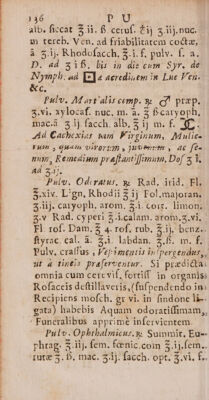 136 P U
alb. ſiccat ʒii. ß ceruſ. ʒij ʒ.iij. nuc.
m tereb. Ven. ad friabilitatem coctæ,
ā ʒij. Rhodoſacch. ʒ.i. ſ. pulv. ſ. a.
D. ad ʒi ß, bis in die cum Syr. de
Nymph. ad in Lue Ven.
&c.
Pulv. Martialis comp. ℞ ♂ præp.
ʒ.vi. xylocaſ. nuc. m. ā. ʒ ß caryoph.
mac. ā ʒij ſacch. alb. ʒ ij m. f.
Ad Cachexias tam Virginum, Mulie-
rum, quam virorum, juvenum, ac ſe-
num, Remedium præſtantiſſimum. Doſ ʒ ſ.
ad ʒ.ij.
Pulv. Odoratus. ℞. Rad. irid. Fl.
ʒ.xiv. Lign. Rhodii ʒ ij Fol. majoran.
ʒ.iij. caryoph. arom. ʒ.i. cort. limon.
ʒ.v Rad. cyperi ʒ.i. calam. arom. ʒ.vi.
Fl roſ. Dam. ʒ 4. roſ. rub. ʒ.ij. benz.
ſtyrac cal. ā. ʒ.i. labdan. ʒ.ß. m. f.
Pulv. craſſus, Veſtimentis inſpergendus,
ut à tineis præſerventur. Si prædicta
omnia cum cereviſ. fortiſſ in organis
Roſaceis deſtillaveris, (ſuſpendendo in
Recipiens moſch. gr vi. in ſindone li-
gata) habebis Aquam odoratiſſimam,
Funeralibus apprimè inſervientem
Pulv. Ophthalmicus. ℞ Summit. Eu-
phrag. ʒ.iij. ſem. fœnic. com ʒij. ſem.
rutæ ʒ. ß. mac. ʒ.ij. ſacch. opt. ʒ.vi. ſ.